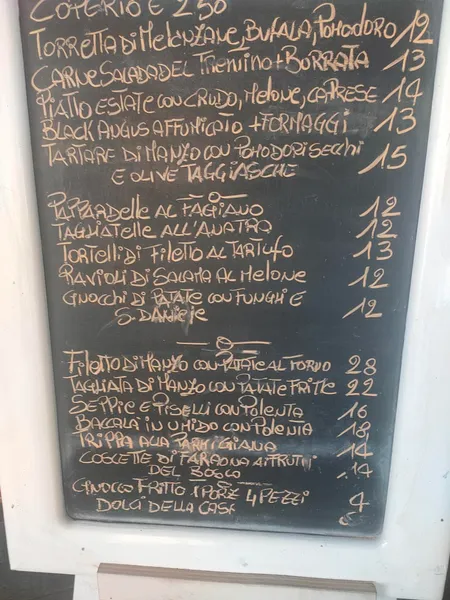 COPERTO € 2.50
TORRETTA DI MELANZANE, BUFALA, POMODORO 12
CARNE SALADA DEL TRENTINO + BURRATA 13
PIATTO ESTATE CON CRUDO, MELONE, CAPRESE 14
BLACK ANGUS AFFUMICATO + FORMAGGI 13
TARTARE DI MANZO CON POMODORI SECCHI
E OLIVE TAGGIASCHE 15
PAPPARDELLE AL FAGIANO 12
TAGLIATELLE ALL'ANATRA 12
TORTELLI DI FILETTO AL TARTUFO 13
RAVIOLI DI SALAMA AL MELONE 12
GNOCCHI DI PATATE CON FUNGHI E
S. DANIELE 12
FILETTO DI MANZO CON PATATE AL FORNO 28
TAGLIATA DI MANZO CON PATATE FRITTE 22
SEPPIE E PISELLI CON POLENTA 16
BACCALÀ IN UMIDO CON POLENTA 18
TRIPPA ALLA PARMIGIANA 14
COSCETTE DI FARAONA AI FRUTTI
DEL BOSCO 14
GNOCCO FRITTO 1 PORZ 4 PEZZI 4
DOLCI DELLA CASA